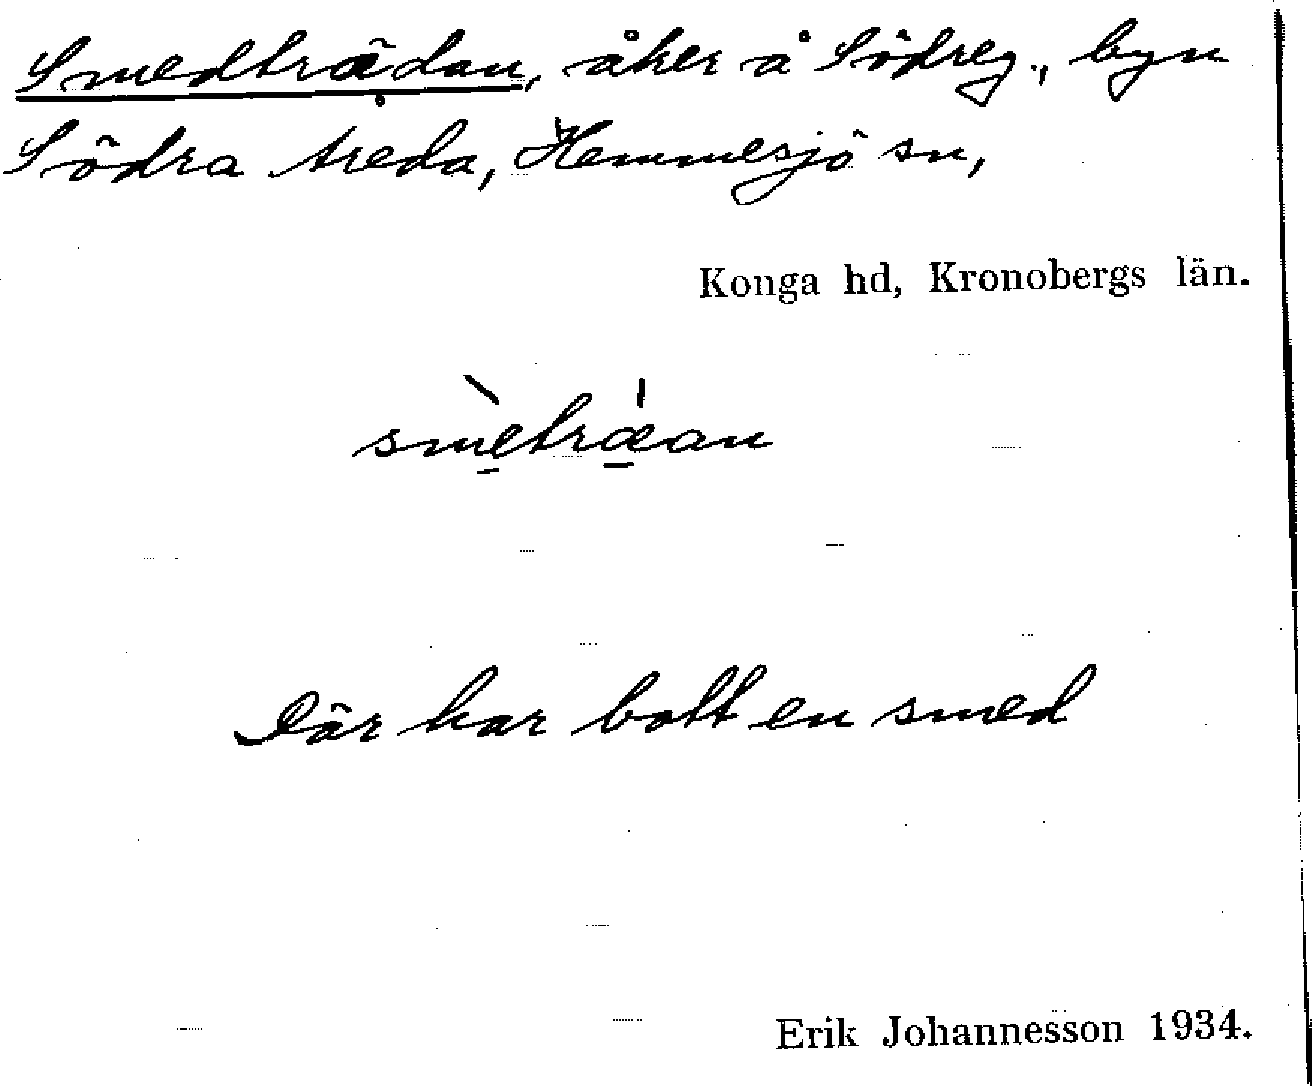 Smedträdan, åker å Södreg., byn
Södra Areda, Hemmesjö sn,
Konga hd, Kronobergs län.
smètræ̍an
Där har bott en smed
Erik Johannesson 1934.